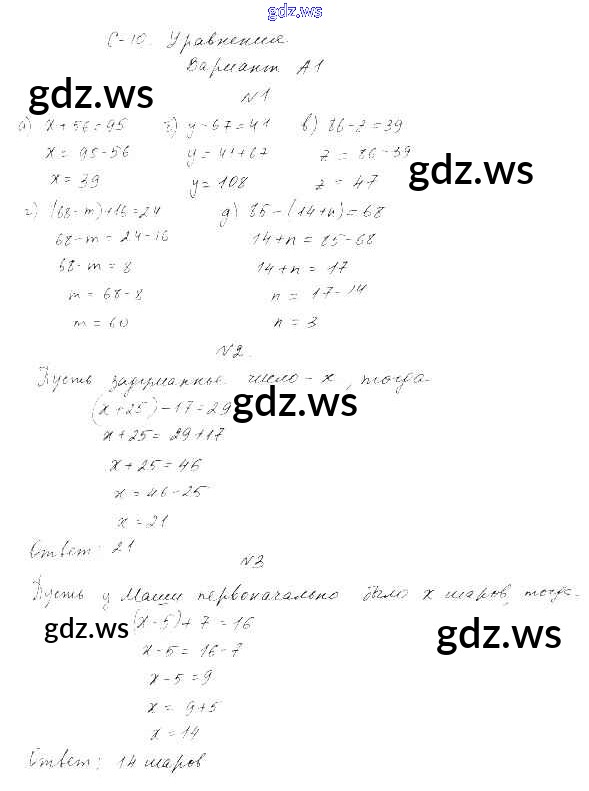 gdz.ws
С-10. Уравнения.
Вариант А1
gdz.ws
№1
а) x+56=95 б) y-67=41 в) 86-z=39
x = 95-56 y = 41+67 z = 86-39
gdz.ws
x = 39 y = 108 z = 47
г) (68-m)+16=24 д) 85-(14+n)=68
68-m = 24-16 14+n = 85-68
68-m = 8 14+n = 17
m = 68-8 n = 17-14
m = 60 n = 3
№2.
Пусть задуманное число - x, тогда
(x+25)-17=29
gdz.ws
x+25 = 29+17
x+25 = 46
x = 46-25
x = 21
Ответ: 21
№3
Пусть у Маши первоначально было x шаров, тогда
(x-5)+7=16
gdz.ws
gdz.ws
x-5 = 16-7
x-5 = 9
x = 9+5
x = 14
Ответ: 14 шаров